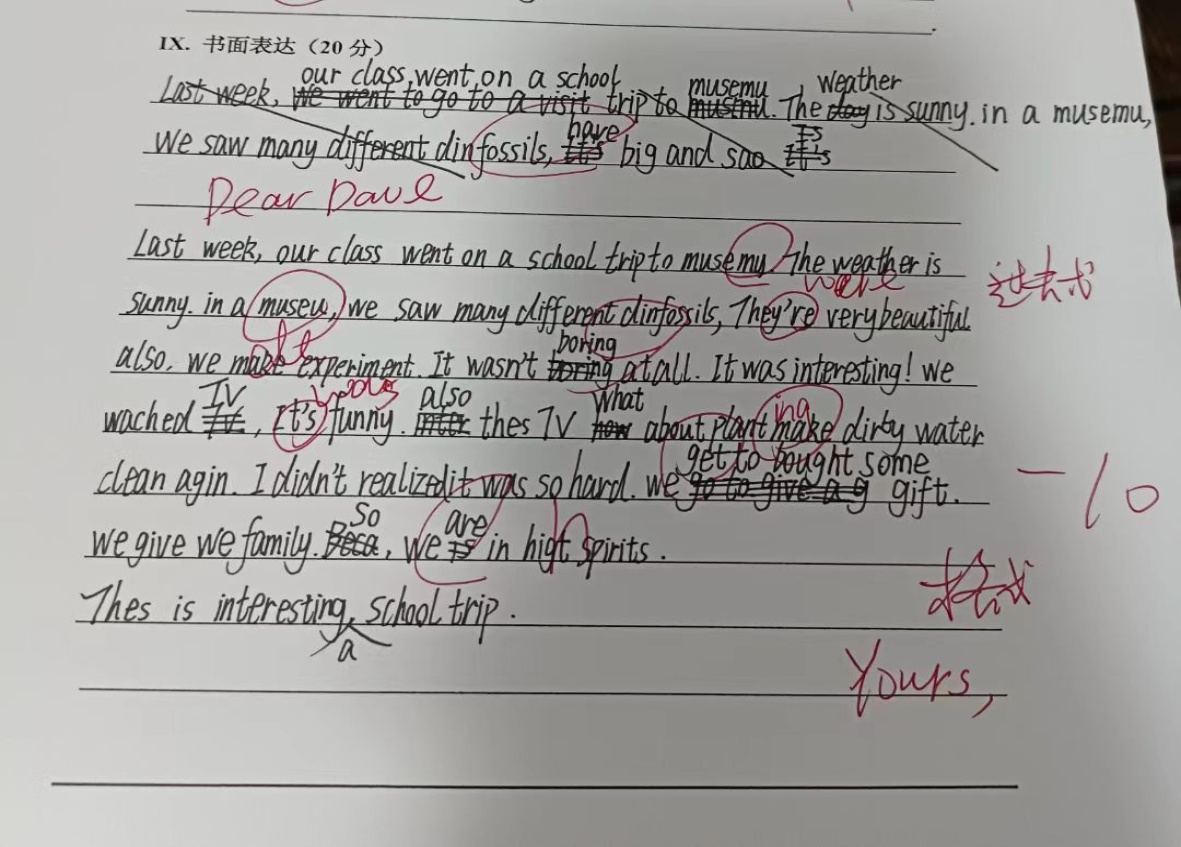 IX. 书面表达（20 分）
our class went on a school musemu weather
Last week, we went to go to a visit trip to musmu. The day is sunny. in a musemu,
have Is
We saw many different dinfossils, It's big and sao It's
Dear Dave
Last week, our class went on a school trip to musemu The weather is
were 过去式
sunny. in a museu, we saw many different dinfossils, They're very beautiful
boring
also. we make experiment. It wasn't boring at all. It was interesting! we
TV also what ing
wached TV, It's funny. inter thes TV how about plant make dirty water
get to bought some
clean agin. I didn't realized it was so hard. we go to give a g gift.
-10
So are
we give we family. Beca, we is in high spirits.
格式
Thes is interesting, school trip.
a
Yours,